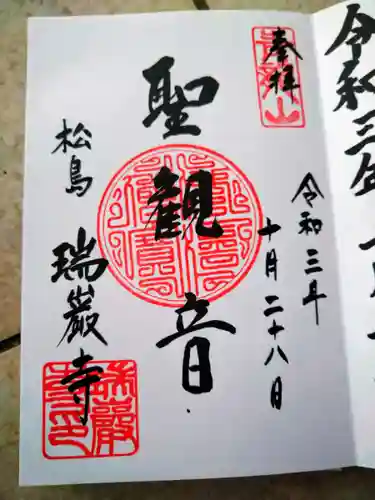 奉拝
令和三年
十月二十八日
聖観音
松島
瑞巌寺
令和三年